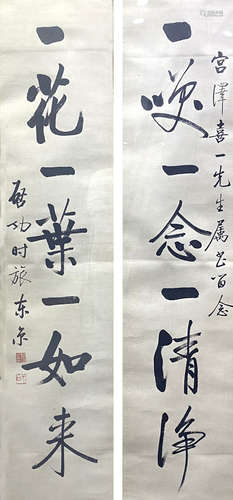 宫澤喜一先生属书留念
一笑一念一清浄
一花一葉一如来
啟功时旅东京